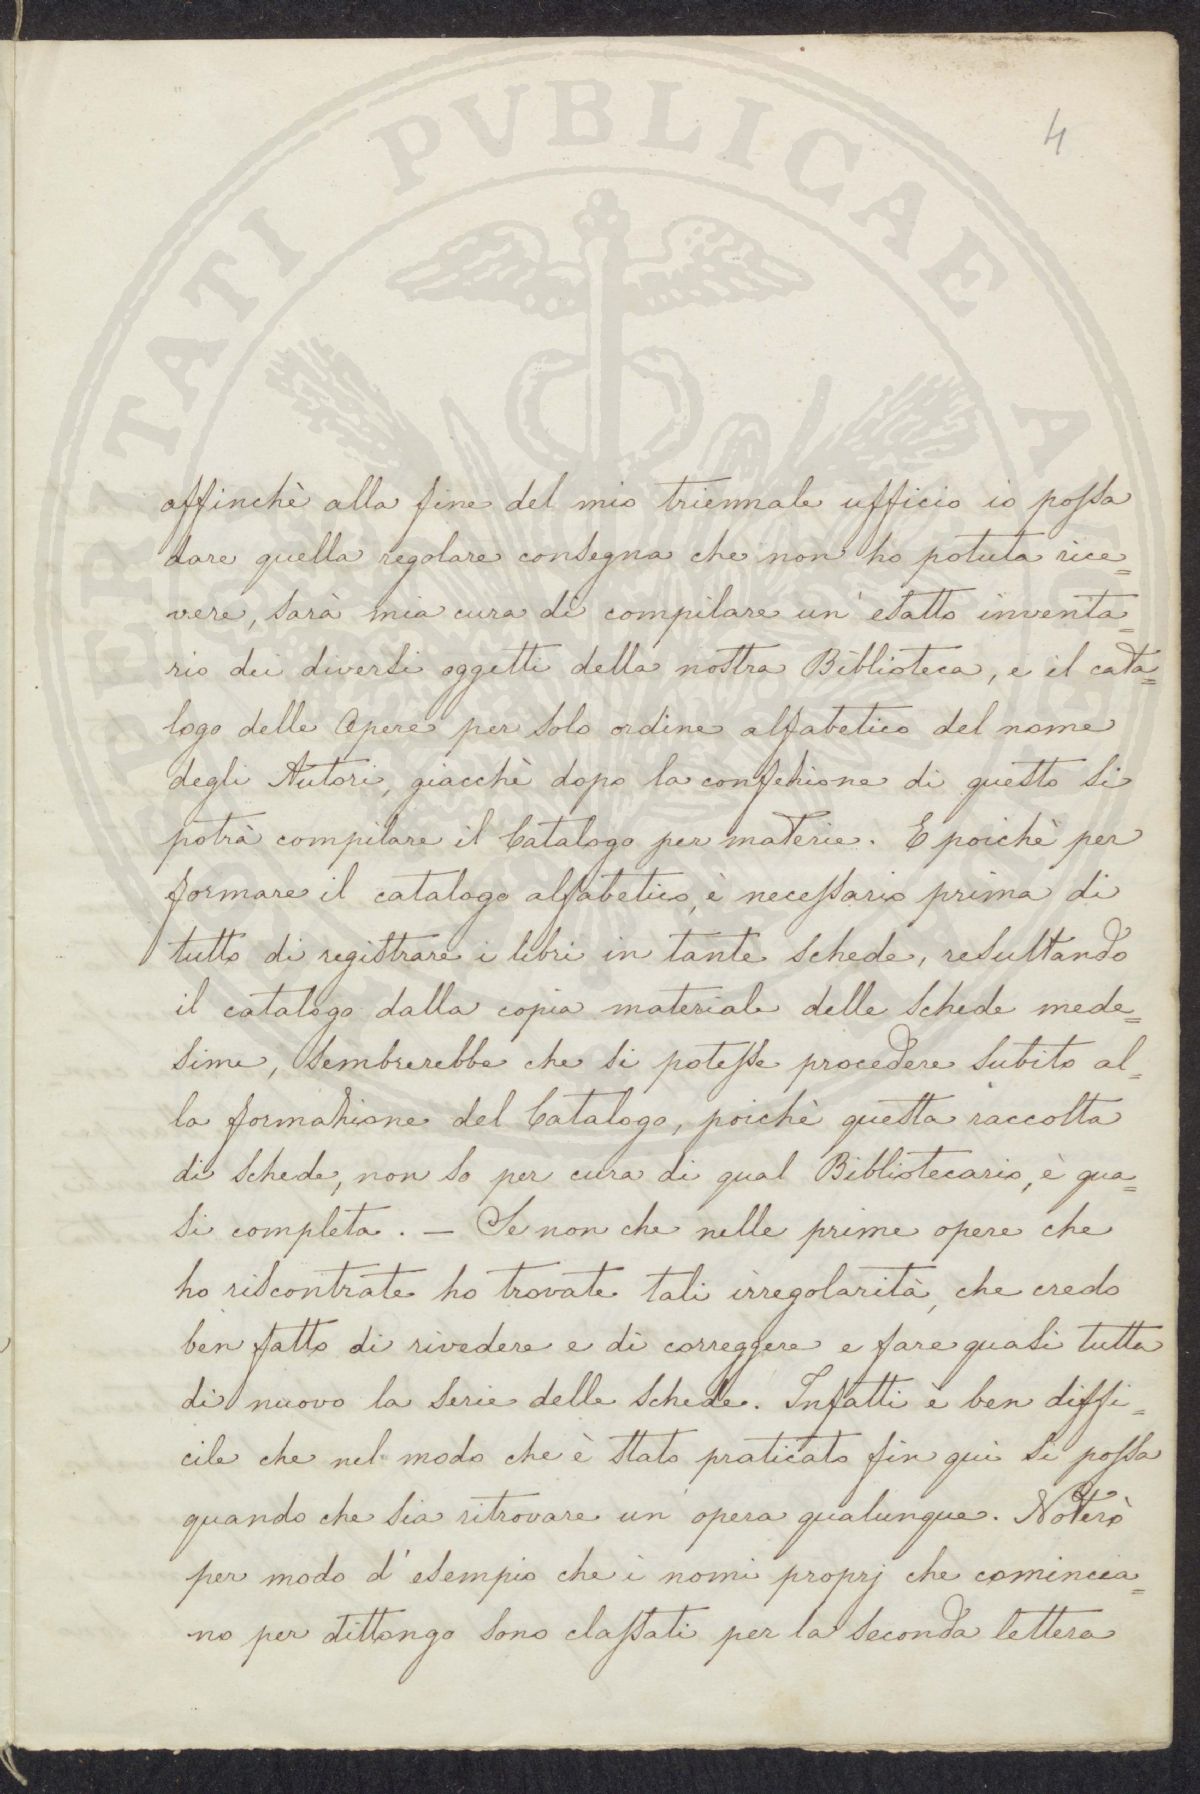 PROSPERITATI PVBLICAE A
4
affinchè alla fine del mio triennale ufficio io possa
dare quella regolare consegna che non ho potuta rice=
vere, sarà mia cura di compilare un' esatto inventa=
rio dei diversi oggetti della nostra Biblioteca, e il cata=
logo delle Opere per solo ordine alfabetico del nome
degli Autori, giacchè dopo la confezione di questo si
potrà compilare il Catalogo per materie. E poichè per
formare il catalogo alfabetico, è necessario prima di
tutto di registrare i libri in tante schede, resultando
il catalogo dalla copia materiale delle schede mede=
sime, sembrerebbe che si potesse procedere subito al=
la formazione del Catalogo, poichè questa raccolta
di schede, non so per cura di qual Bibliotecario, è qua=
si completa. — Se non che nelle prime opere che
ho riscontrate ho trovate tali irregolarità, che credo
ben fatto di rivedere e di correggere e fare quasi tutta
di nuovo la serie delle schede. Infatti è ben diffi=
cile che nel modo che è stato praticato fin qui si possa
quando che sia ritrovare un' opera qualunque. Noterò
per modo d' esempio che i nomi proprj che comincia=
no per dittongo sono classati per la seconda lettera